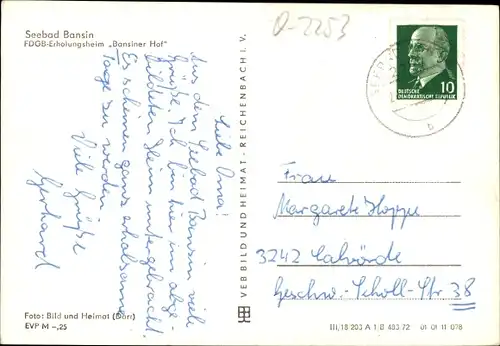 Seebad Bansin
FDGB-Erholungsheim „Bansiner Hof"
Liebe Oma!
Aus dem Seebad Bansin viele
Grüße. Ich bin hier im abge-
bildeten Heim untergebracht.
Es scheinen ganz erholsame
Tage zu werden.
Viele Grüße
Gerhard
Foto: Bild und Heimat (Dörr)
EVP M –,25
VEB BILD UND HEIMAT · REICHENBACH I. V.
DEUTSCHE
DEMOKRATISCHE REPUBLIK
10
b
Frau
Margarete Hoppe
3242 Calvörde
Geschw.-Scholl-Str 38
III/18 203 A 1 B 403/72 01 01 11 078